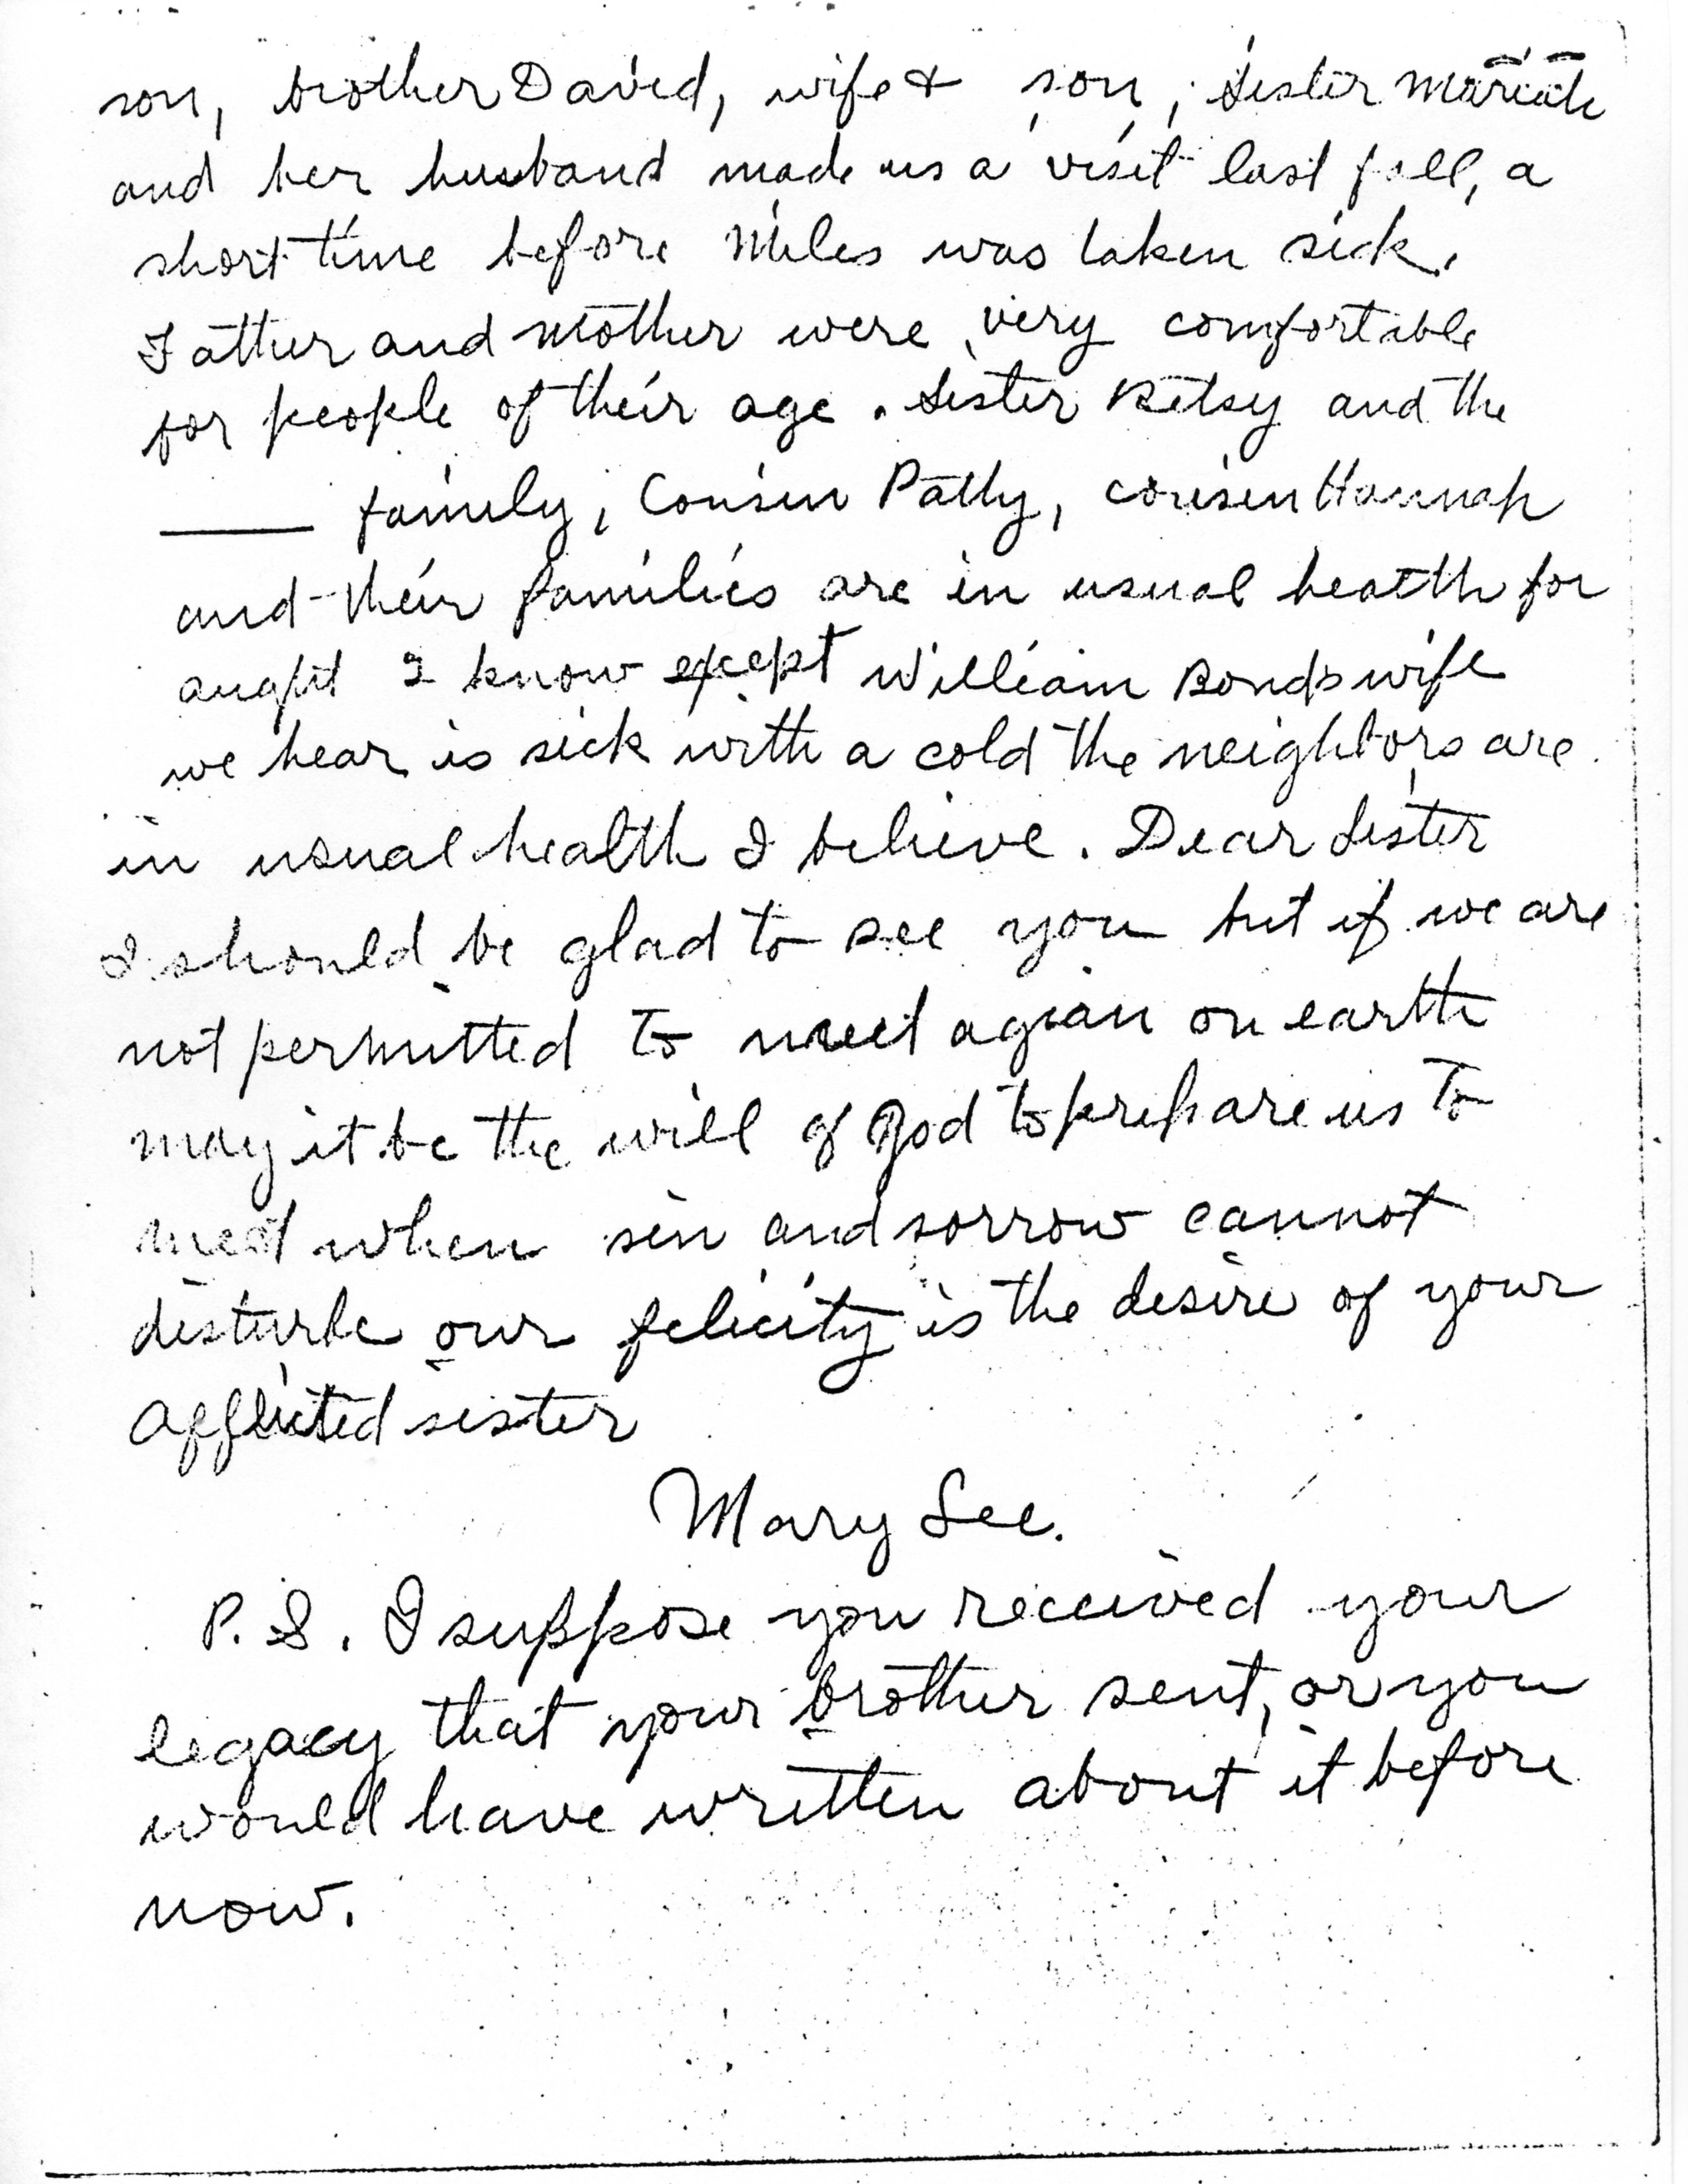 son, brother David, wife & son, Sister Mariah
and her husband made us a visit last fall, a
short time before Miles was taken sick.
Father and Mother were very comfortable
for people of their age. Sister Betsy and the
____ family, Cousin Patty, cousin Hannah
and their families are in usual heatth for
aught I know except William Bonds wife
we hear is sick with a cold the neighbors are
in usual health I believe. Dear Sister
I should be glad to see you but if we are
not permitted to meet agian on earth
may it be the will of God to prepare us to
meet when sin and sorrow cannot
disturbe our felicity is the desire of your
afflicted sister
Mary Lee.
P.S. I suppose you received your
legacy that your brother sent, or you
would have written about it before
now.